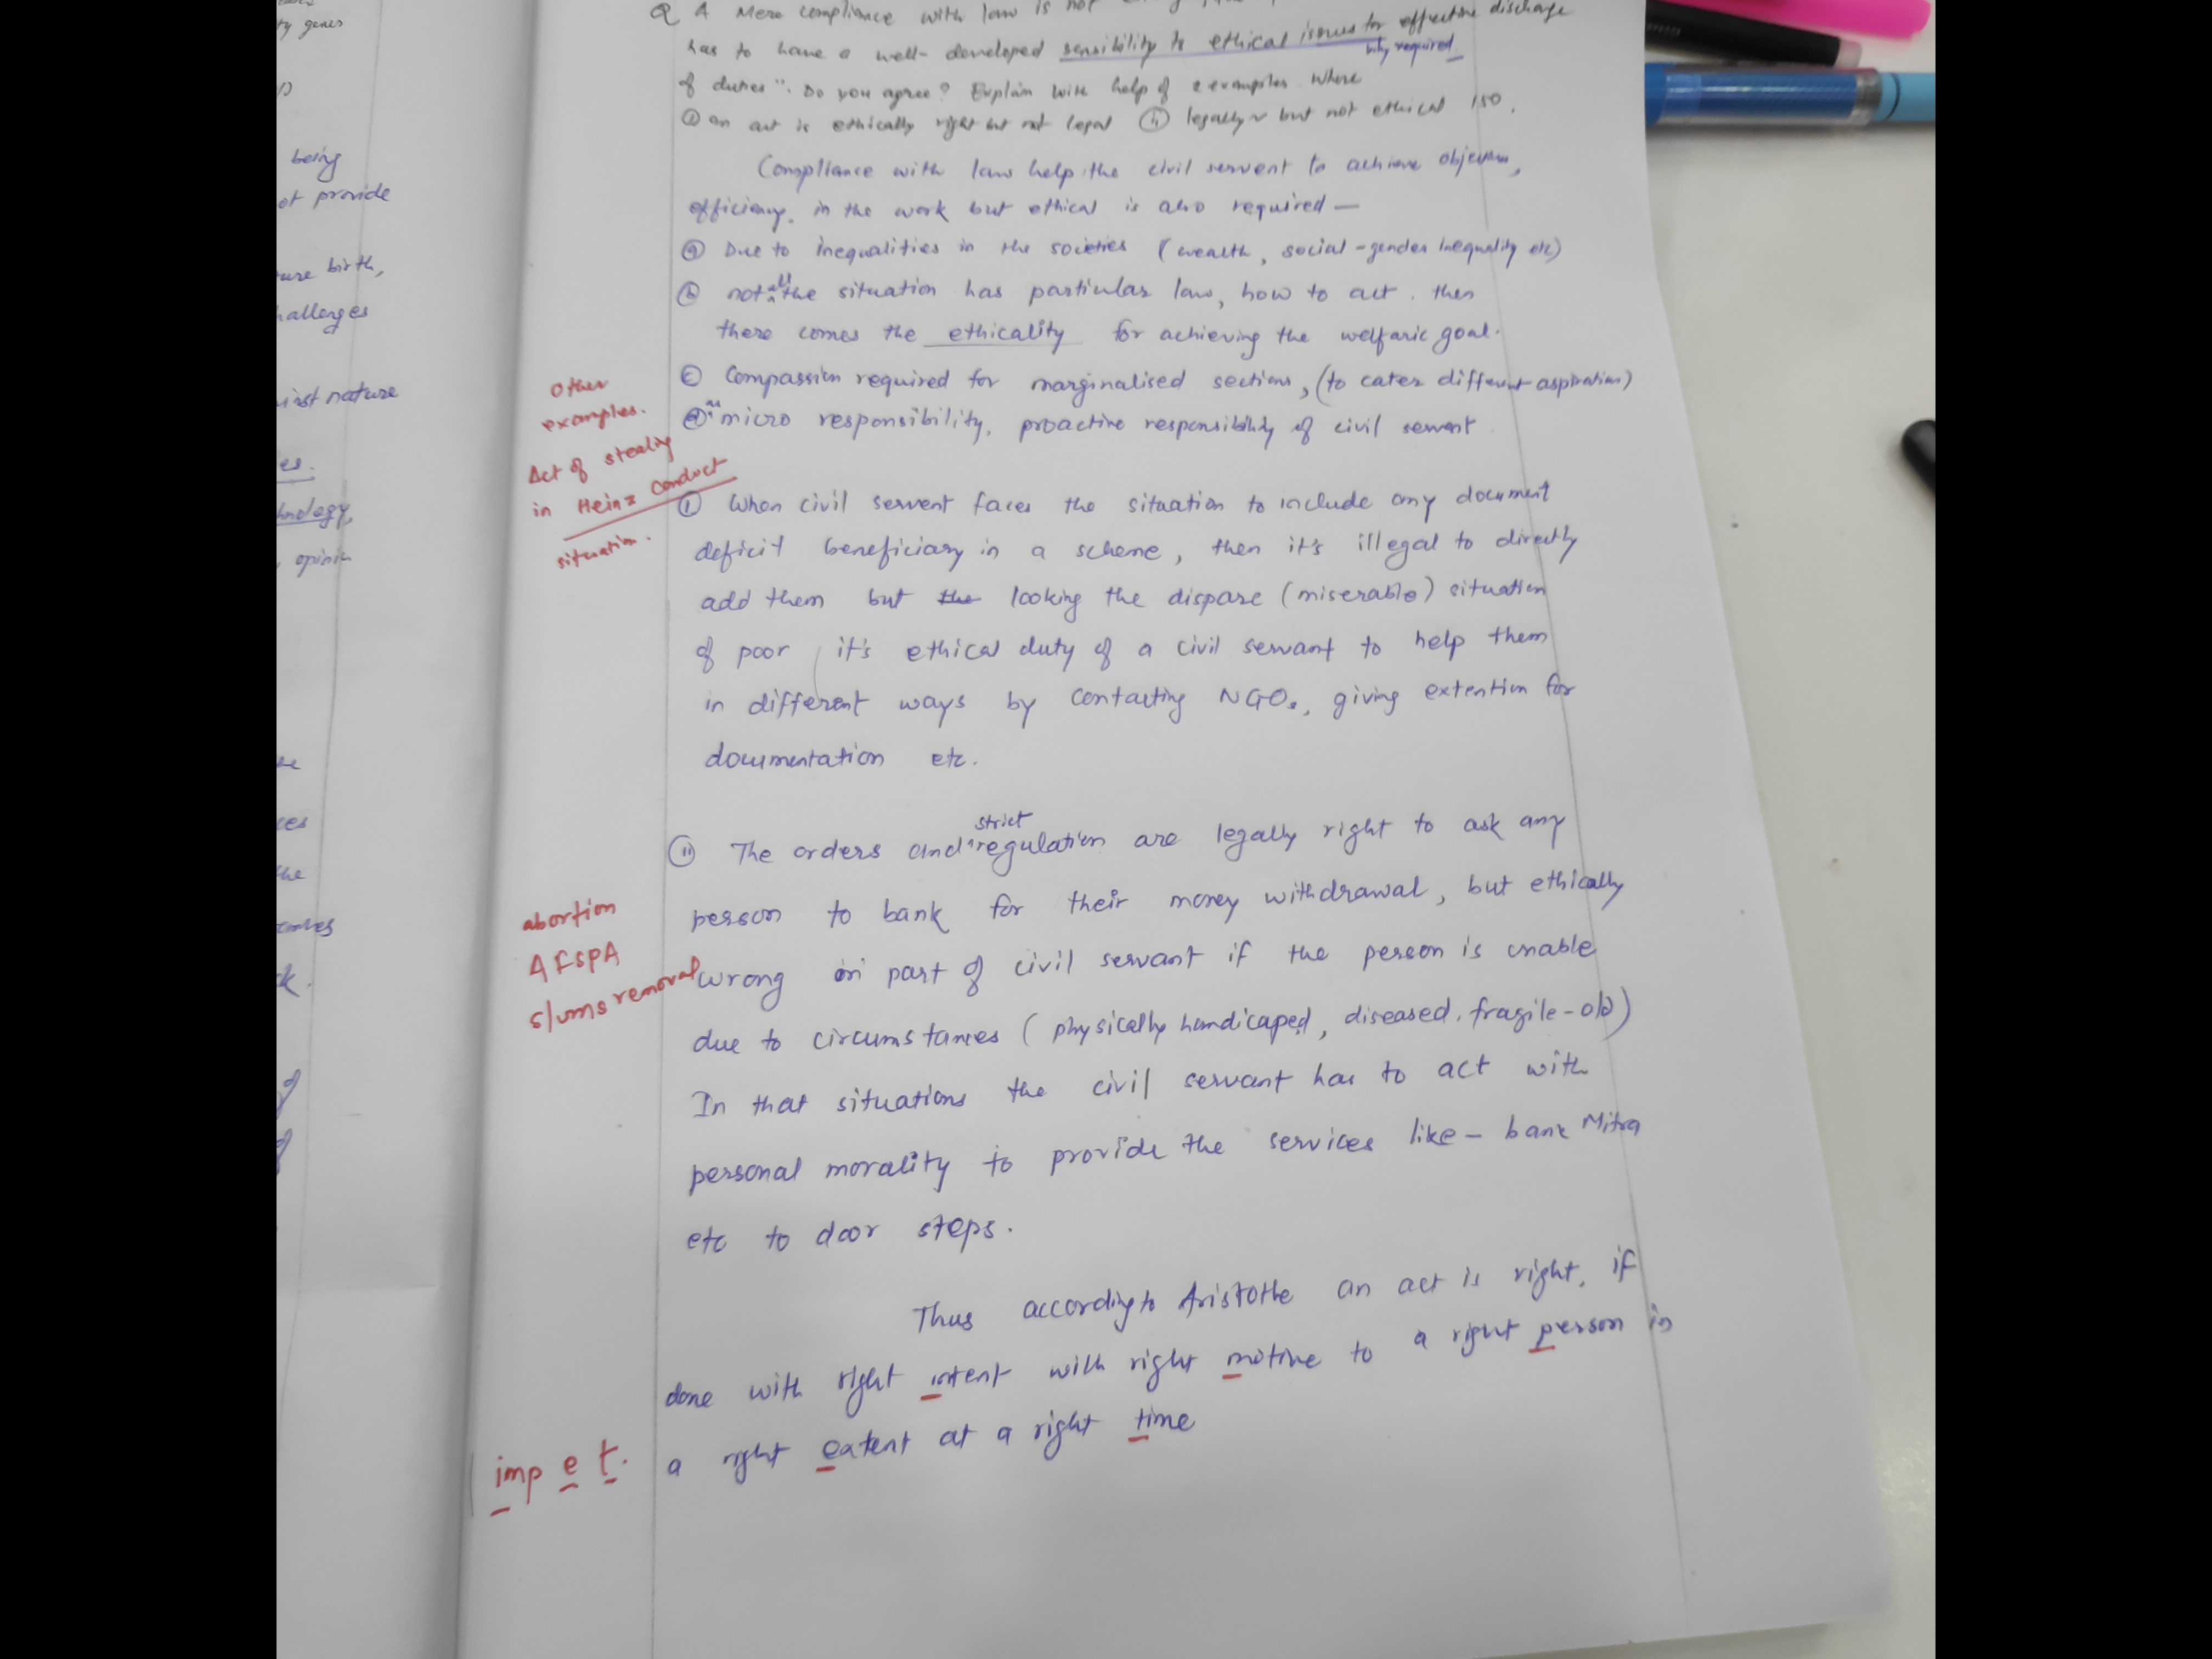 ty genes
being
ot provide
ure birth,
hallenges
inst nature
es.
hnology,
opinin
ces
the
k.
Q A Mere compliance with law is not
has to have a well-developed sensibility to ethical issues for effective discharge
why required
of duties". Do you agree? Explain with help of 2 examples where
(i) an act is ethically right but not legal (ii) legally ✓ but not ethical 150.
Compliance with law help the civil servent to achieve objectives,
efficiency, in the work but ethical is also required —
(a) Due to inequalities in the societies (wealth, social-gender Inequality etc)
(b) not all the situation has particular law, how to act. then
there comes the ethicality for achieving the welfaric goal.
(c) Compassion required for marginalised sections, (to cater different aspirations)
(d) as micro responsibility, proactive responsibility of civil servent.
Other
examples.
Act of stealing
in Heinz conduct
situation.
(i) When civil servent faces the situation to include any document
deficit beneficiary in a scheme, then it's illegal to directly
add them but the looking the dispare (miserable) situation
of poor it's ethical duty of a civil servant to help them
in different ways by contacting NGOs, giving extention for
documentation etc.
(ii) The orders and strict regulation are legally right to ask any
person to bank for their money withdrawal, but ethically
wrong on part of civil servant if the person is unable
due to circumstances (physically handicaped, diseased, fragile-old)
In that situations the civil servant has to act with
personal morality to provide the services like – bank Mitra
etc to door steps.
abortion
AFSPA
slums removal
Thus according to Aristotle an act is right, if
done with right intent with right motive to a right person in
a right extent at a right time
imp e t.